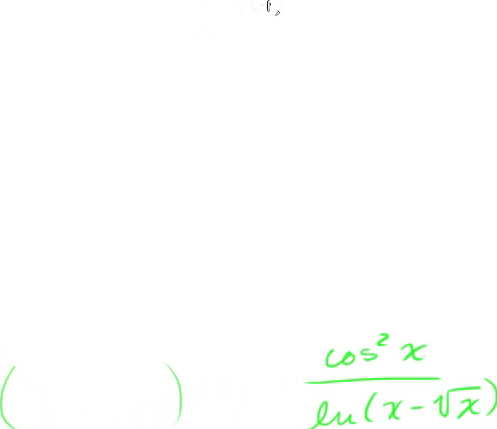 ( ) cos² x / ln(x - √x)